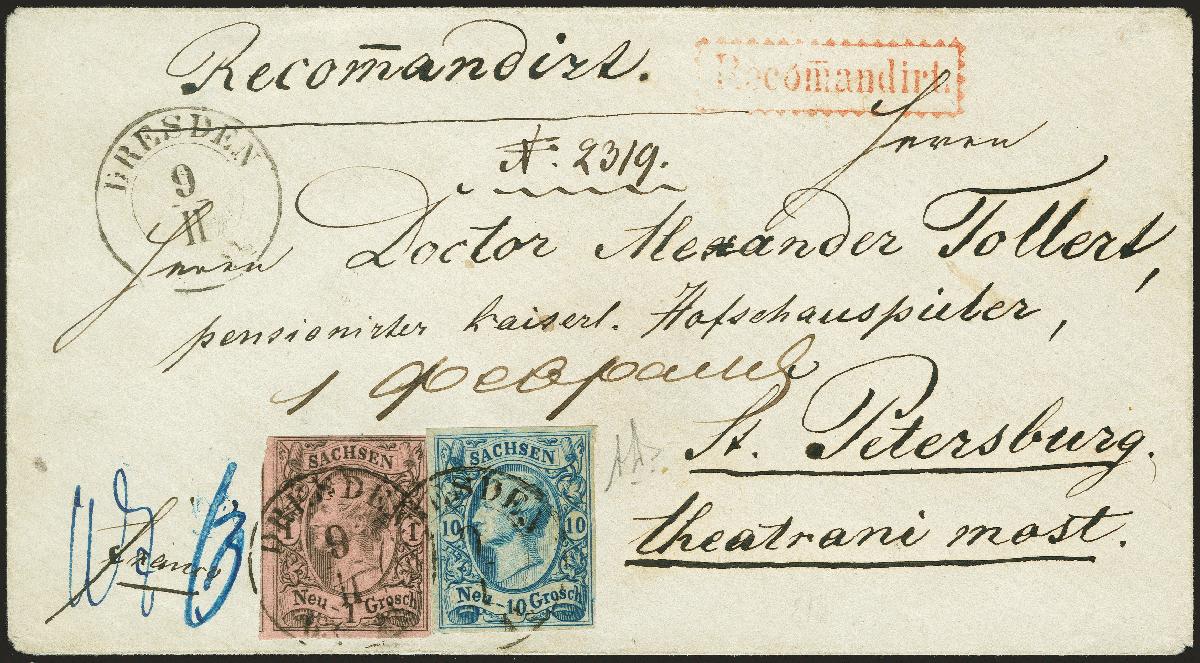 Recom̄andirt.
Recom̄andirt.
DRESDEN
9
II
Herrn
N. 2319.
Herrn Doctor Alexander Tollert,
pensionirter kaiserl. Hofschauspieler,
1 Февраля
St. Petersburg.
theatrani most.
franco
SACHSEN
1 1
Neu-1 Grosch
DRESDEN
9
II
SACHSEN
10 10
Neu-10 Grosch